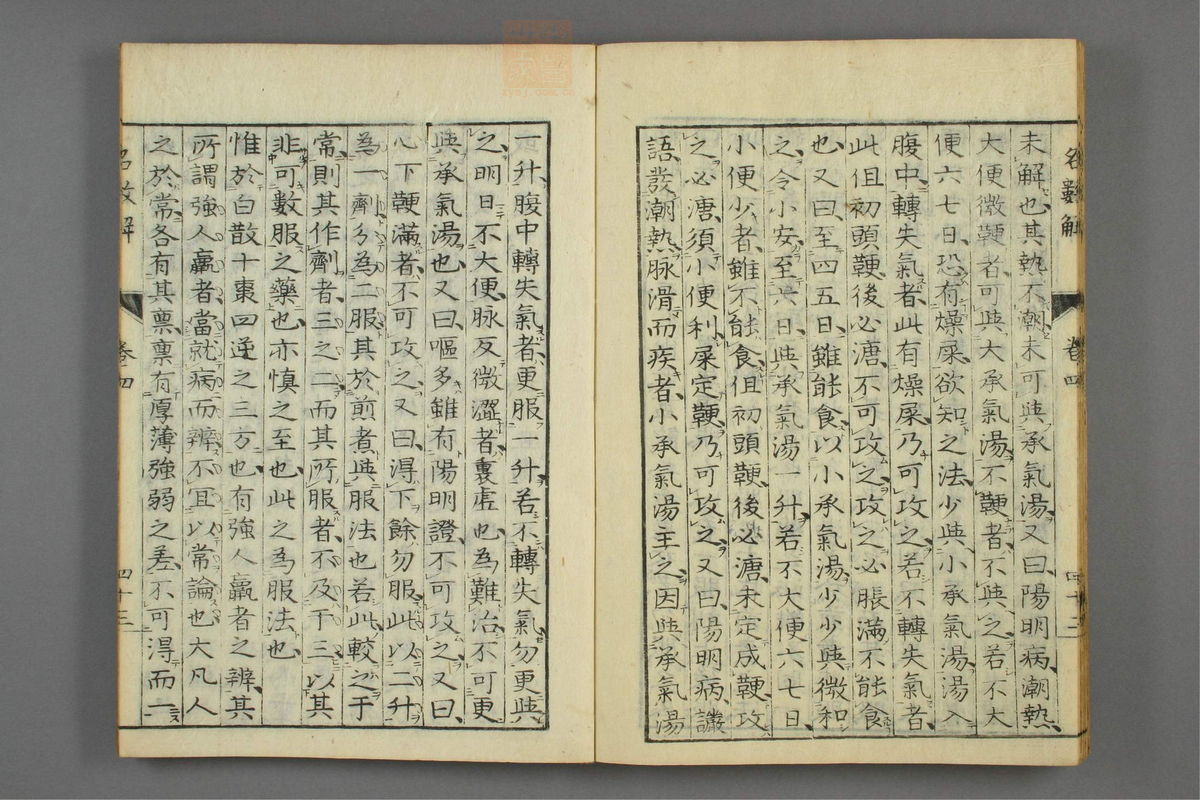 卷四
未解也其熱不潮未可與承氣湯又曰陽明病潮熱
大便微鞕者可與大承氣湯不鞕者不與之若不大
便六七日恐有燥屎欲知之法少與小承氣湯湯入
腹中轉失氣者此有燥屎乃可攻之若不轉失氣者
此但初頭鞕後必溏不可攻之攻之必脹滿不能食
也又曰至四五日雖能食以小承氣湯少少與微和
之令小安至六日與承氣湯一升若不大便六七日
小便少者雖不能食但初頭鞕後必溏未定成鞕攻
之必溏須小便利屎定鞕乃可攻之又曰陽明病讝
語發潮熱脉滑而疾者小承氣湯主之因與承氣湯
一升腹中轉失氣者更服一升若不轉失氣勿更與
之明日不大便脉反微澀者裏虛也為難治不可更
與承氣湯也又曰嘔多雖有陽明證不可攻之又曰
心下鞕滿者不可攻之又曰得下餘勿服此以二升
為一劑分為二服其於煎煮與服法也若此較之于
常則其作劑者三之二而其所服者不及于三以其
非可數服之藥也亦慎之至也此之為服法也
惟於白散十棗四逆之三方也有強人羸者之辨其
所謂強人羸者當就病而辨不宜以常論也大凡人
之於常各有其稟稟有厚薄強弱之差不可得而一
卷四
四十三